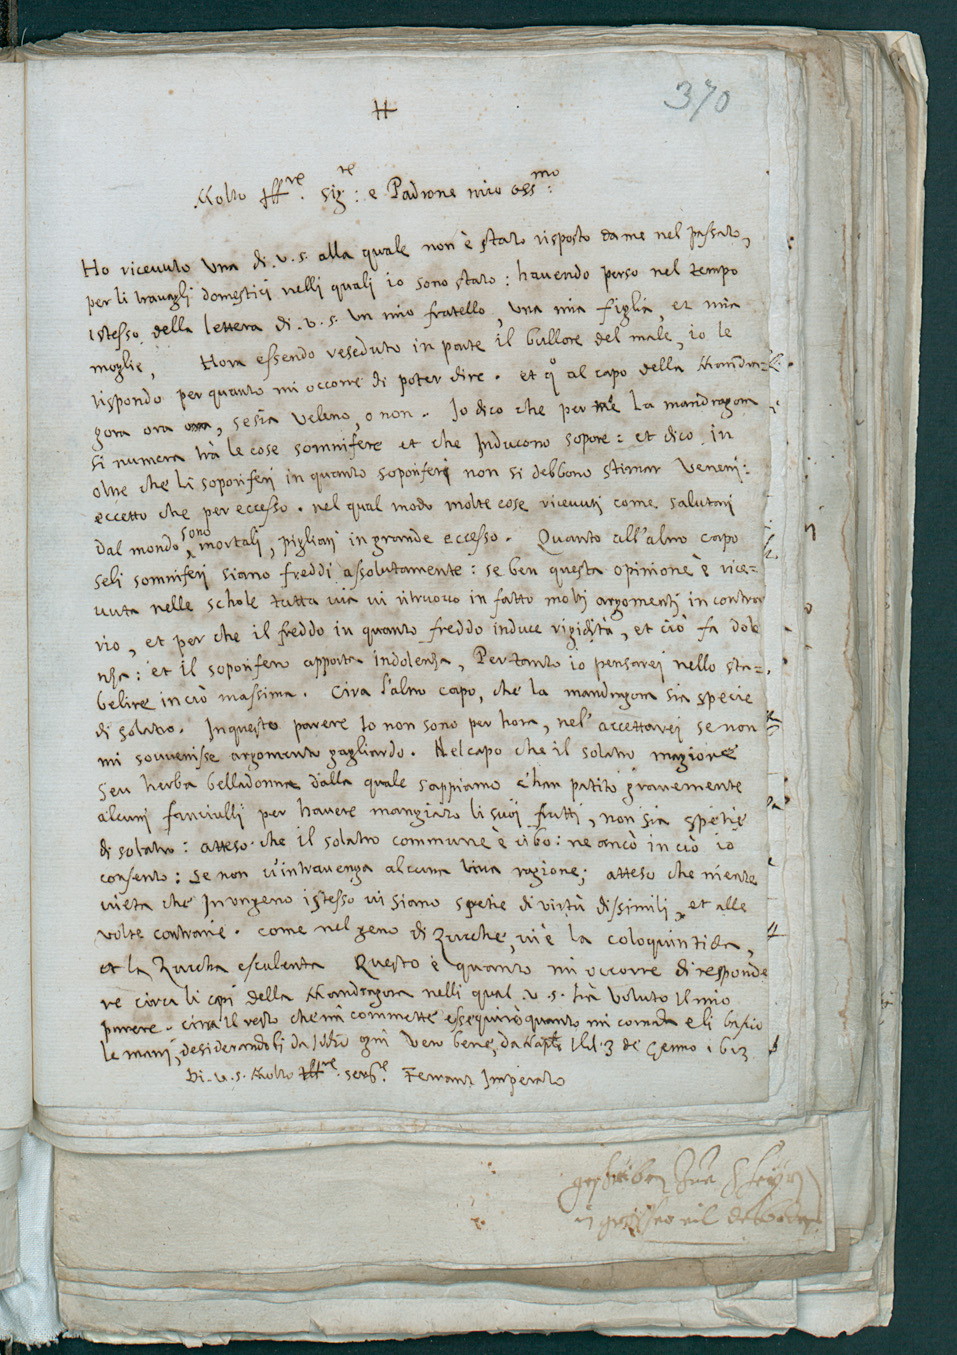 370
Molto Ill.re Sig.re: e Padrone mio oss.mo:
Ho ricevuto una di .v.s. alla quale non è stato risposto da me nel passato,
per li travagli domestici nelli quali io sono stato: havendo perso nel tempo
istesso della lettera di .v.s. un mio fratello, una mia figlia, et mia
moglie, Hora essendo reseduto in parte il bullore del male, io le
rispondo per quanto mi occorre di poter dire. et q.o al capo della Mandra=
gora ora, se sia veleno, o non. Io dico che per me la mandragora
si numera trà le cose somnifere et che Inducono sopore: et dico in
oltre che li soporiferi in quanto soporiferi non si debbono stimar veneni:
eccetto che per eccesso. nel qual modo molte cose ricevuti come salutari
dal mondo sono mortali, pigliati in grande eccesso. Quanto all'altro capo
se li somniferi siano freddi assolutamente: se ben questa opinione è rice=
vuta nelle schole tutta via vi ritruovo in fatto molti argomenti in contra
rio, et per che il freddo in quanto freddo induce rigidità, et ciò fa dole
nza: et il soporifero apporta indolenza, Per tanto io pensarei nello sta=
belire in ciò massima. Circa l'altro capo, che la mandragora sia specie
di solatro. In questo parere Io non sono per hora, nel' accettarei se non
mi souvenisse argomento gagliardo. Nel capo che il solatro magiore
seu herba belladonna dalla quale sappiamo c'han patito gravemente
alcuni fanciulli per havere mangiato li suoi frutti, non sia spetie
di solatro: atteso che il solatro commune è cibo: ne ancò in ciò io
consento: se non ci intravenga alcuna viva ragione; atteso che niente
vieta che In un geno istesso vi siano spetie di virtù dissimili, et alle
volte contrarie. come nel geno di Zucche, vi è la coloquintida,
et la Zuccha esculenta Questo è quanto mi occorre di responde
re circa li capi della Mandragora nelli qual .v.s. hà voluto il mio
parere. circa il resto che mi commette essequirò quanto mi comanda e li bascio
le mani, desiderandoli da Iddio ogni vero bene, da Napoli Il di 3 de Genno 1613
Di .v.s. Molto Ill.re. ser.re. Ferrant Imperato